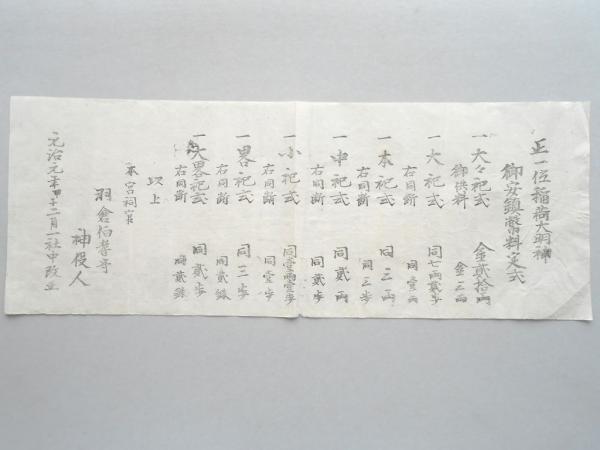 正一位稲荷大明神
御安鎮幣料定式
一大々祀式 金貳拾両
御供料 金三両
一大祀式 同七両貳歩
右同断 同壹両
一本祀式 同三両
右同断 同三歩
一中祀式 同貳両
右同断 同貳歩
一小祀式 同壹両壹歩
右同断 同壹歩
一畧祀式 同三歩
右同断 同貳銖
一大畧祀式 同貳歩
右同断 同貳銖
以上
本宮祠官
羽倉伯耆守
神役人
元治元年十二月一社中改正